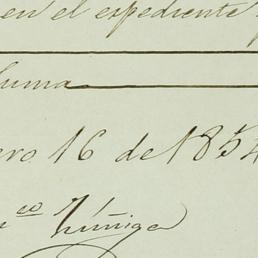 en el expediente
suma
ero 16 de 1854
co Zúñiga